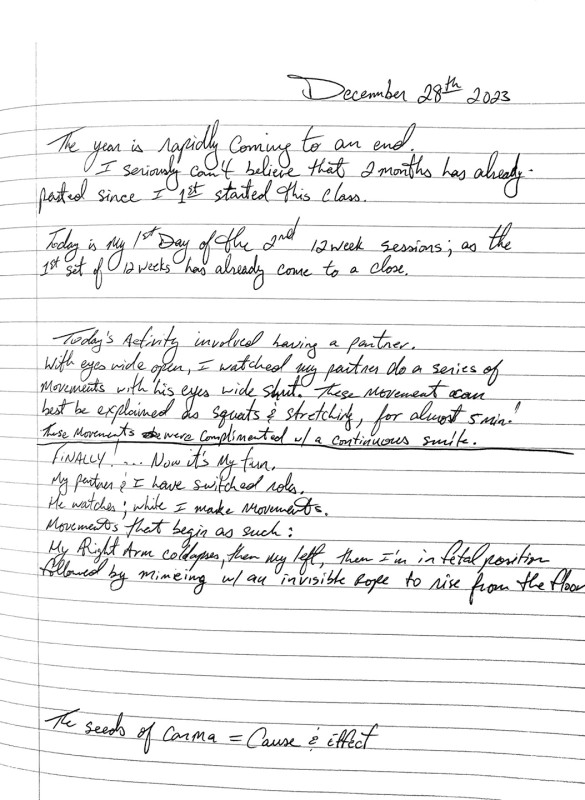 December 28th 2023
The year is rapidly coming to an end.
I seriously can't believe that 2 months has already
passed since I 1st started this class.
Today is my 1st Day of the 2nd 12 week sessions; as the
1st set of 12 weeks has already come to a close.
Today's Activity involved having a partner.
With eyes wide open, I watched my partner do a series of
movements with his eyes wide shut. These movement can
best be explained as squats & stretching, for almost 5 min!
These movements were complimented w/ a continuous smile.
FINALLY! ... Now it's my turn.
My partner & I have switched roles.
He watches; while I make movements.
Movements that begin as such:
My Right Arm collapses, then my left, then I'm in fetal position
followed by mimicing w/ an invisible rope to rise from the floor
The seeds of Carma = Cause & Effect